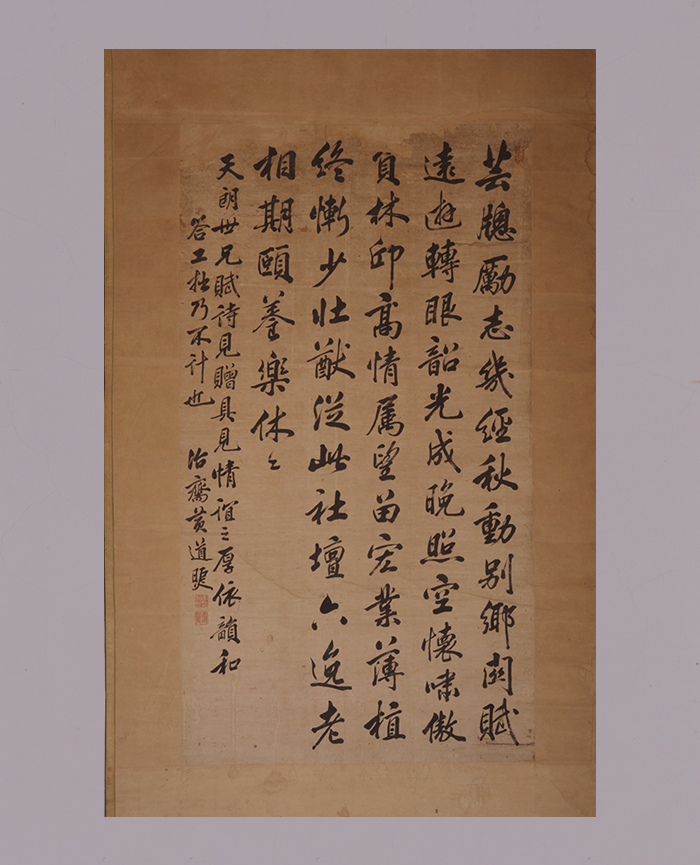 芸牕勵志幾經秋動別鄉関賦
遠遊轉眼韶光成晚照空懷嘯傲
負林邱高情屬望畱宏業薄植
終慚少壯猷從此社壇六逸老
相期頤養樂休々
天朗世兄賦詩見贈具見情誼之厚依韻和
答工拙乃不計也 治齋黃道